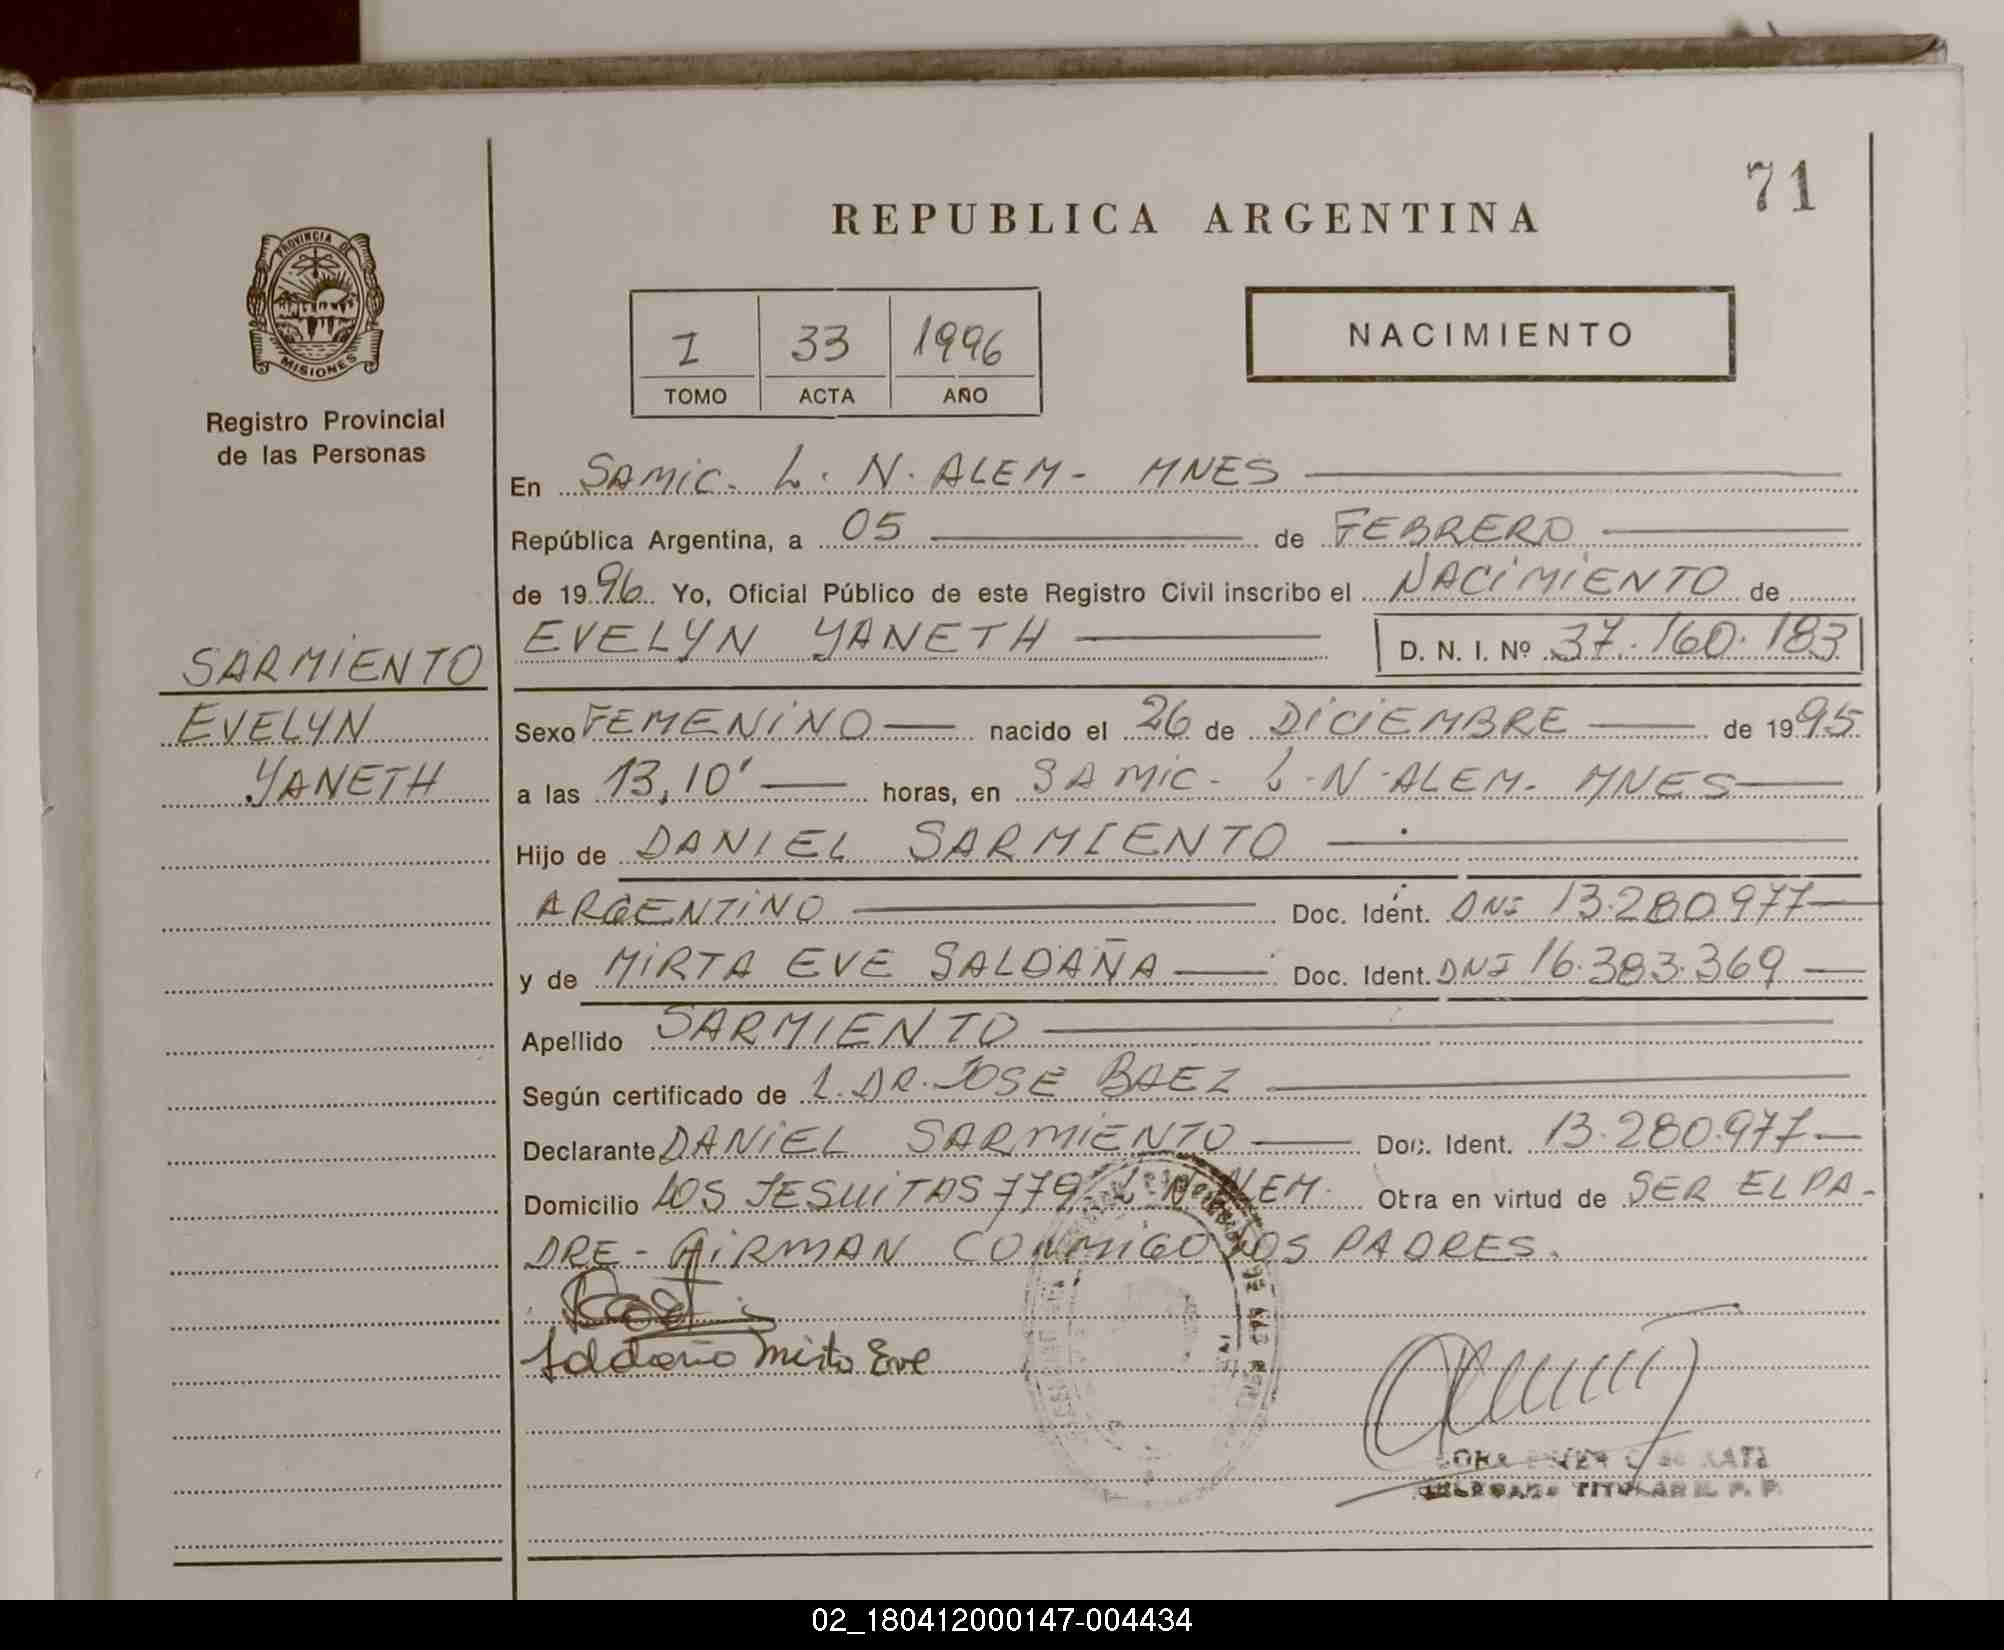 71
REPUBLICA ARGENTINA
PROVINCIA DE
MISIONES
Registro Provincial
de las Personas
I 33 1996
TOMO ACTA AÑO
NACIMIENTO
En SAMIC. L. N. ALEM - MNES
República Argentina, a 05 de FEBRERO
de 1996 Yo, Oficial Público de este Registro Civil inscribo el NACIMIENTO de
EVELYN YANETH D. N. I. Nº 37.160.183
SARMIENTO
EVELYN
YANETH
Sexo FEMENINO nacido el 26 de DICIEMBRE de 1995
a las 13,10' horas, en SAMIC - L-N-ALEM- MNES
Hijo de DANIEL SARMIENTO
ARGENTINO Doc. Ident. DNI 13.280.977
y de MIRTA EVE SALDAÑA Doc. Ident. DNI 16.383.369
Apellido SARMIENTO
Según certificado de L. DR. JOSE BAEZ
Declarante DANIEL SARMIENTO Doc. Ident. 13.280.977
Domicilio LOS JESUITAS 779 L N ALEM. Obra en virtud de SER EL PA-
DRE - FIRMAN CONMIGO LOS PADRES.
Saldaña Mirta Eve
TITULAR R. P. P.
02_180412000147-004434